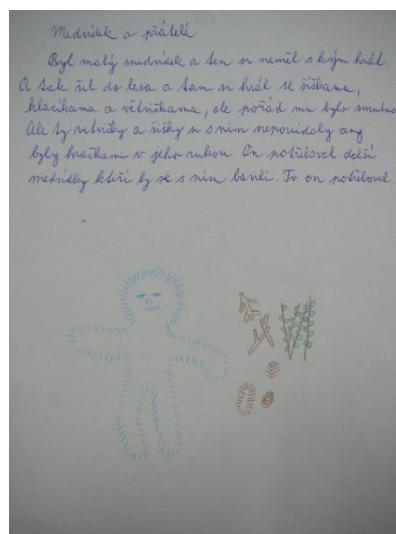 Medvídek a přátelé
Byl malý medvídek a ten si neměl s kým hrát.
A tak šil do lesa a tam si hrál se šiškama,
klacíkama a větvičkama, ale pořád mu bylo smutno
Ale ty větvičky a šišky si s ním nepovídaly
byly hračkami v jeho rukou. On potřeboval další
medvídky kteří by se s ním bavili. To on potřeboval